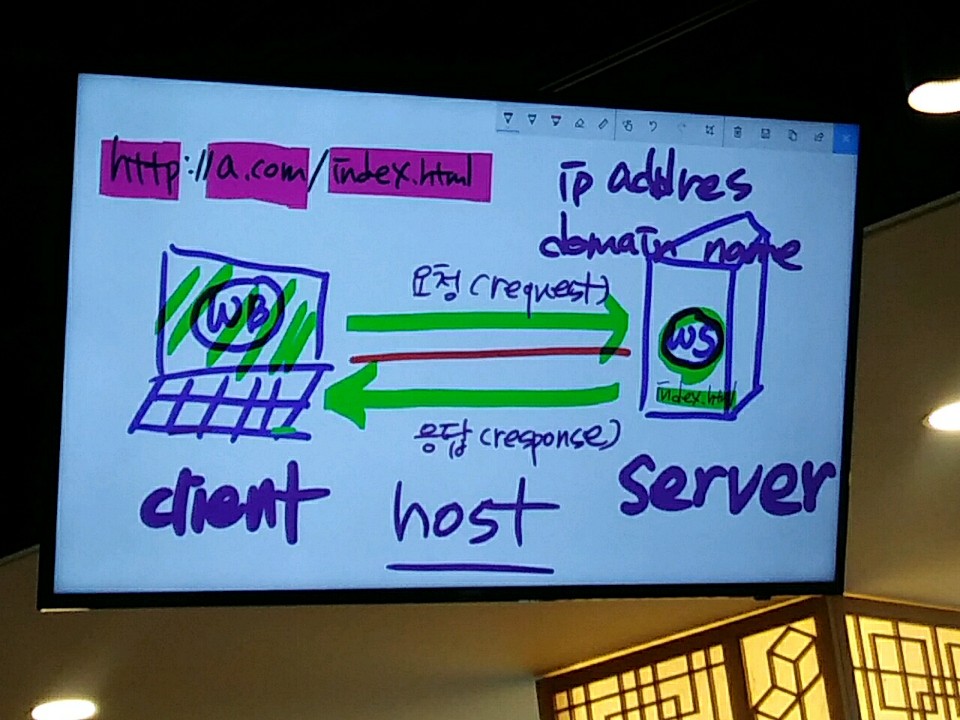 http://a.com/index.html
ip addres
domain name
요청(request)
WB
WS
index.html
응답(response)
client
host
server